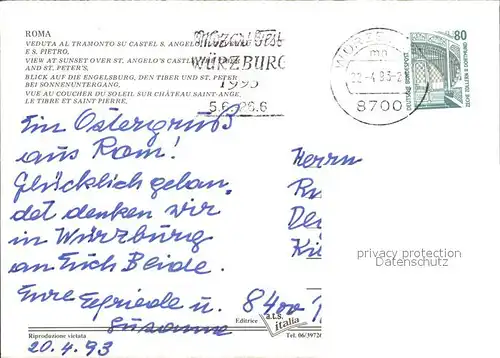 ROMA
VEDUTA AL TRAMONTO SU CASTEL S. ANGELO,
E S. PIETRO.
VIEW AT SUNSET OVER ST. ANGELO'S CASTLE,
AND ST. PETER'S,
BLICK AUF DIE ENGELSBURG, DEN TIBER UND ST. PETER
BEI SONNENUNTERGANG.
VUE AU COUCHER DU SOLEIL SUR CHÂTEAU SAINT-ANGE,
LE TIBRE ET SAINT PIERRE.
Mozartfest
WÜRZBURG
1993
5.6.-26.6
WÜRZB
mn
22-4.93-2
8700
80
DEUTSCHE BUNDESPOST
ZECHE ZOLLERN II DORTMUND
Ein Ostergruß
aus Rom!
Glücklich gelan-
det denken wir
in Würzburg
an Euch Beide.
Eure Elfriede u.
Susanne
20.4.93
Herrn
8400
privacy protection
Datenschutz
Riproduzione vietata
Editrice
a.t.s.
italia
Tel. 06/39726